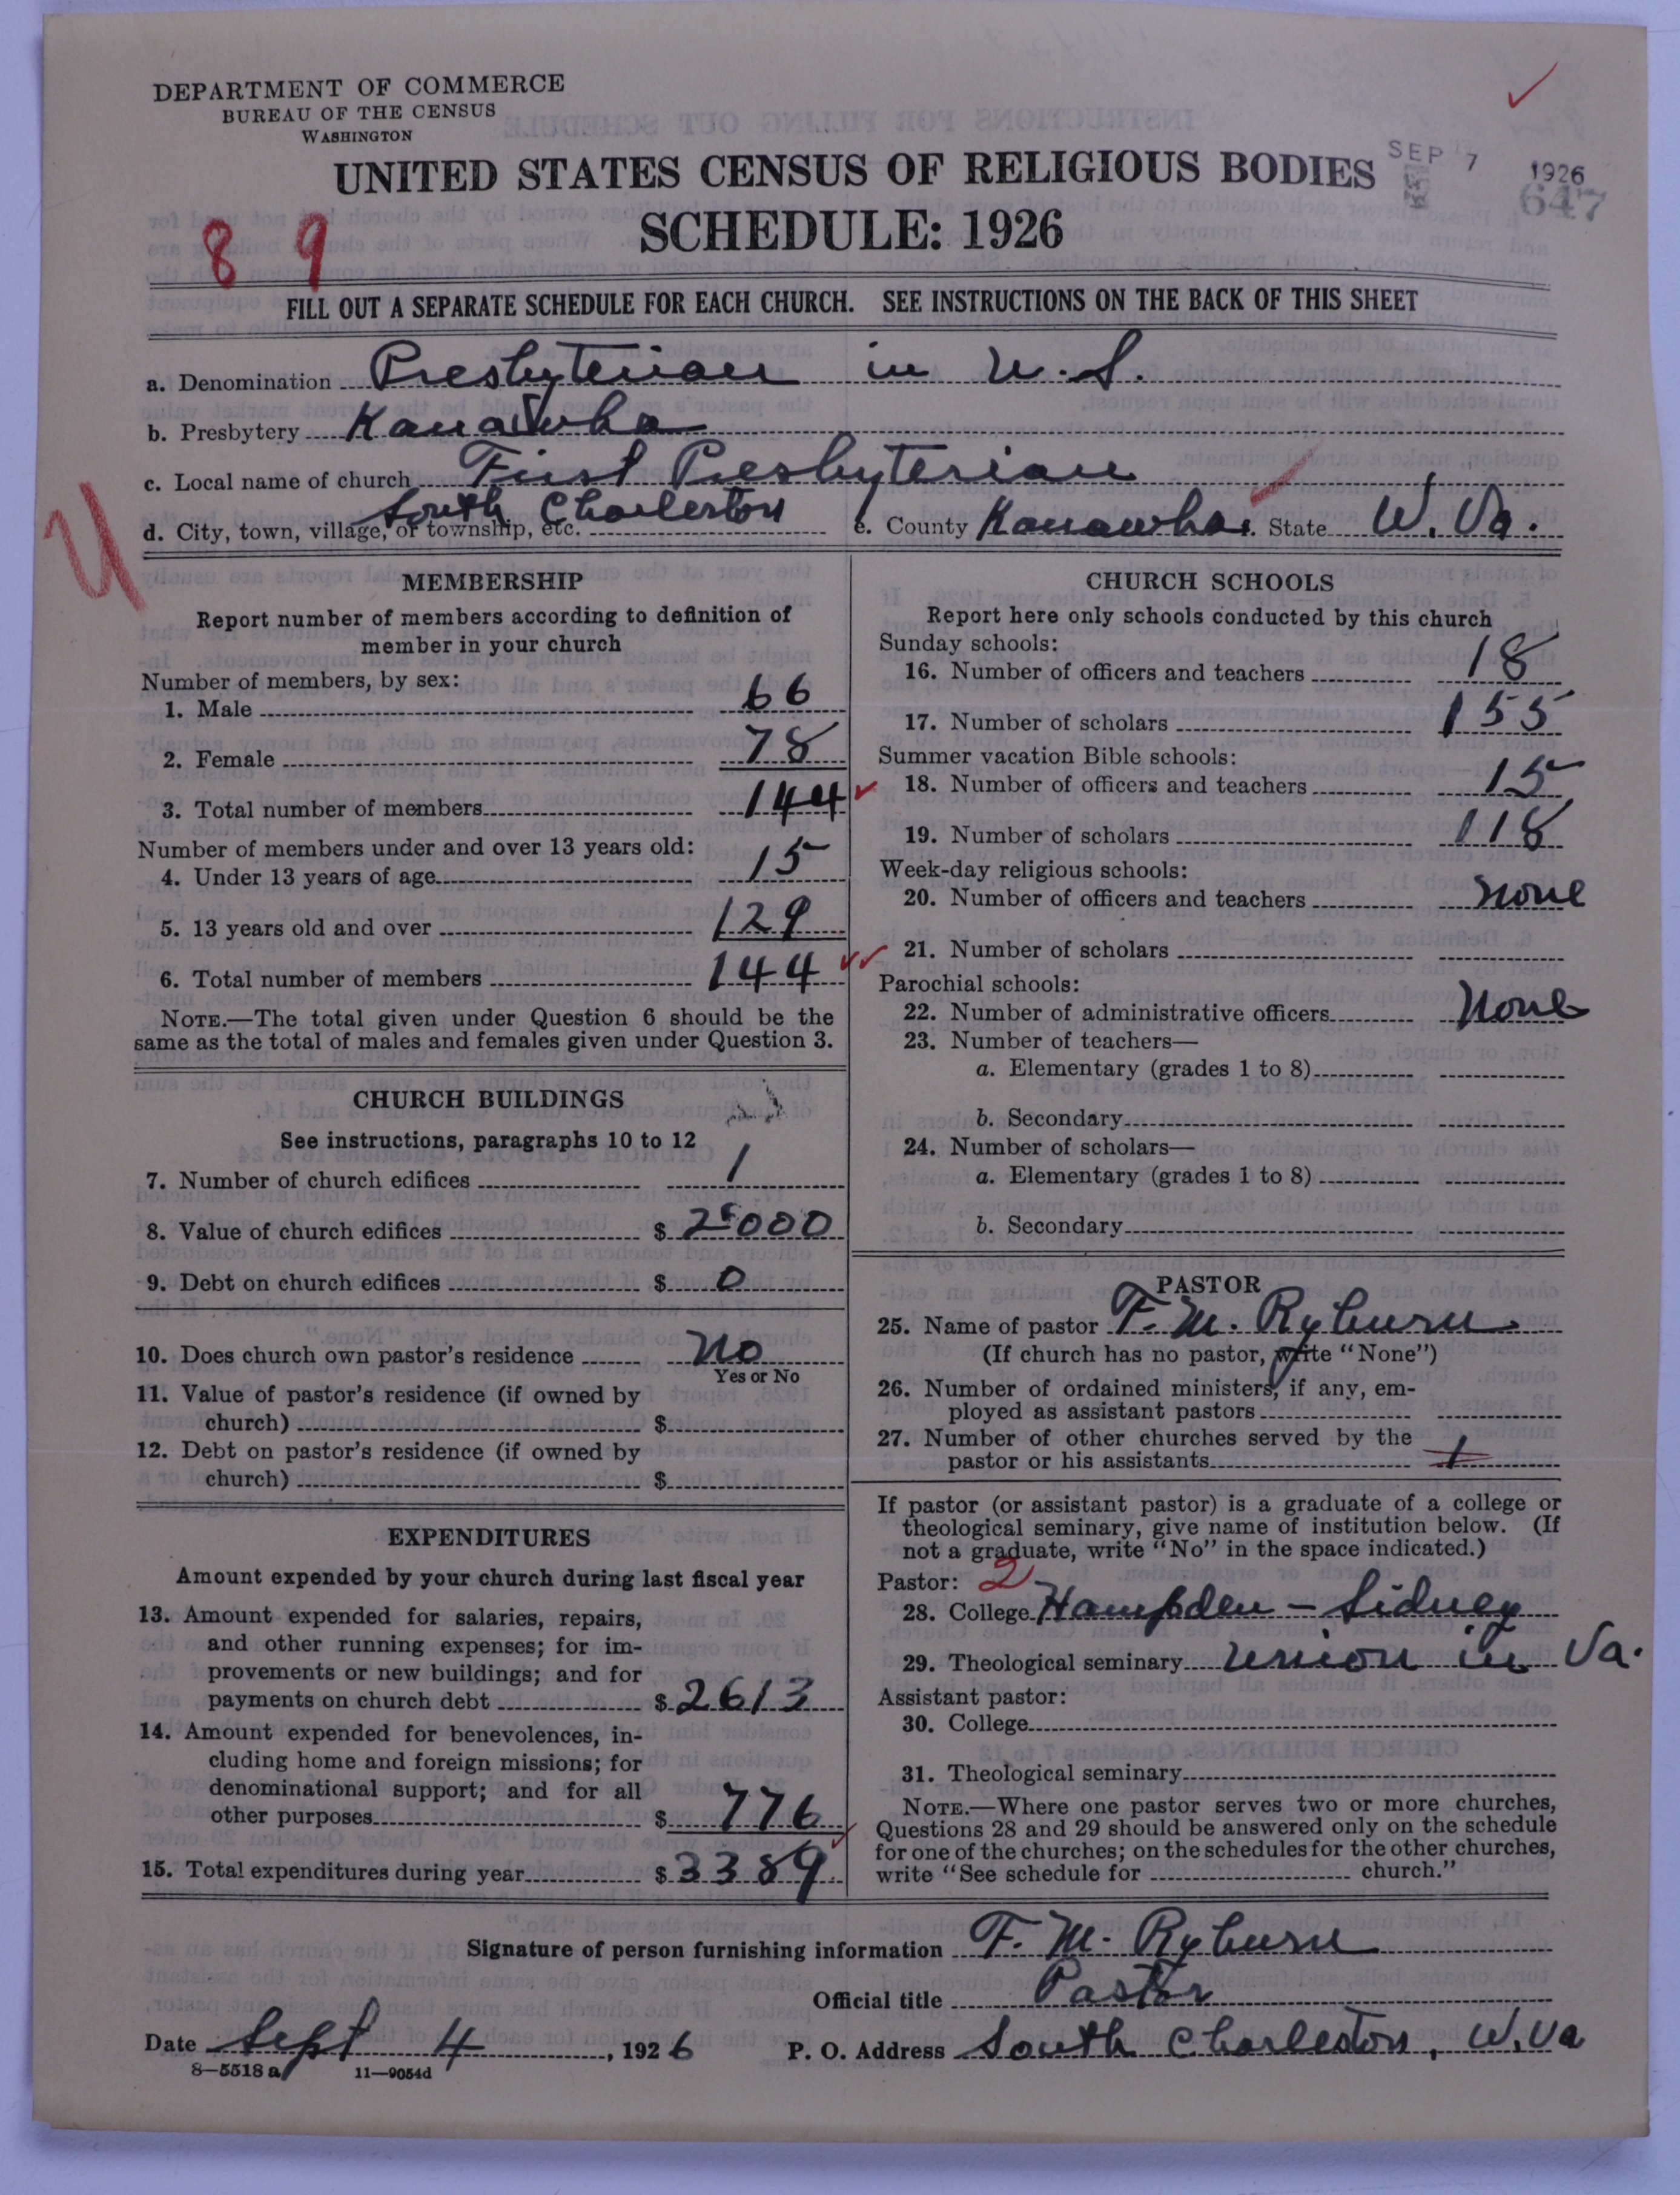 DEPARTMENT OF COMMERCE
BUREAU OF THE CENSUS
WASHINGTON
UNITED STATES CENSUS OF RELIGIOUS BODIES
SEP 7 1926
647
SCHEDULE: 1926
8 9
FILL OUT A SEPARATE SCHEDULE FOR EACH CHURCH. SEE INSTRUCTIONS ON THE BACK OF THIS SHEET
a. Denomination Presbyterian in U.S.
b. Presbytery Kanawha
c. Local name of church First Presbyterian
d. City, town, village, or township, etc. South Charleston e. County Kanawha f. State W. Va.
U
MEMBERSHIP
Report number of members according to definition of
member in your church
Number of members, by sex:
1. Male 66
2. Female 78
3. Total number of members 144
Number of members under and over 13 years old:
4. Under 13 years of age 15
5. 13 years old and over 129
6. Total number of members 144
NOTE.—The total given under Question 6 should be the
same as the total of males and females given under Question 3.
CHURCH BUILDINGS
See instructions, paragraphs 10 to 12
7. Number of church edifices 1
8. Value of church edifices $ 25000
9. Debt on church edifices $ 0
10. Does church own pastor's residence No
Yes or No
11. Value of pastor's residence (if owned by
church) $
12. Debt on pastor's residence (if owned by
church) $
EXPENDITURES
Amount expended by your church during last fiscal year
13. Amount expended for salaries, repairs,
and other running expenses; for im-
provements or new buildings; and for
payments on church debt $ 2613
14. Amount expended for benevolences, in-
cluding home and foreign missions; for
denominational support; and for all
other purposes $ 776
15. Total expenditures during year $ 3389
CHURCH SCHOOLS
Report here only schools conducted by this church
Sunday schools:
16. Number of officers and teachers 18
17. Number of scholars 155
Summer vacation Bible schools:
18. Number of officers and teachers 15
19. Number of scholars 118
Week-day religious schools:
20. Number of officers and teachers none
21. Number of scholars
Parochial schools:
22. Number of administrative officers none
23. Number of teachers—
a. Elementary (grades 1 to 8)
b. Secondary
24. Number of scholars—
a. Elementary (grades 1 to 8)
b. Secondary
PASTOR
25. Name of pastor F. M. Ryburn
(If church has no pastor, write "None")
26. Number of ordained ministers, if any, em-
ployed as assistant pastors
27. Number of other churches served by the
pastor or his assistants 1
If pastor (or assistant pastor) is a graduate of a college or
theological seminary, give name of institution below. (If
not a graduate, write "No" in the space indicated.)
Pastor: 2
28. College Hampden-Sidney
29. Theological seminary Union in Va.
Assistant pastor:
30. College
31. Theological seminary
NOTE.—Where one pastor serves two or more churches,
Questions 28 and 29 should be answered only on the schedule
for one of the churches; on the schedules for the other churches,
write "See schedule for church."
Signature of person furnishing information F. M. Ryburn
Official title Pastor
Date Sept 4, 1926 P. O. Address South Charleston, W. Va
8—5518 a 11—9054d